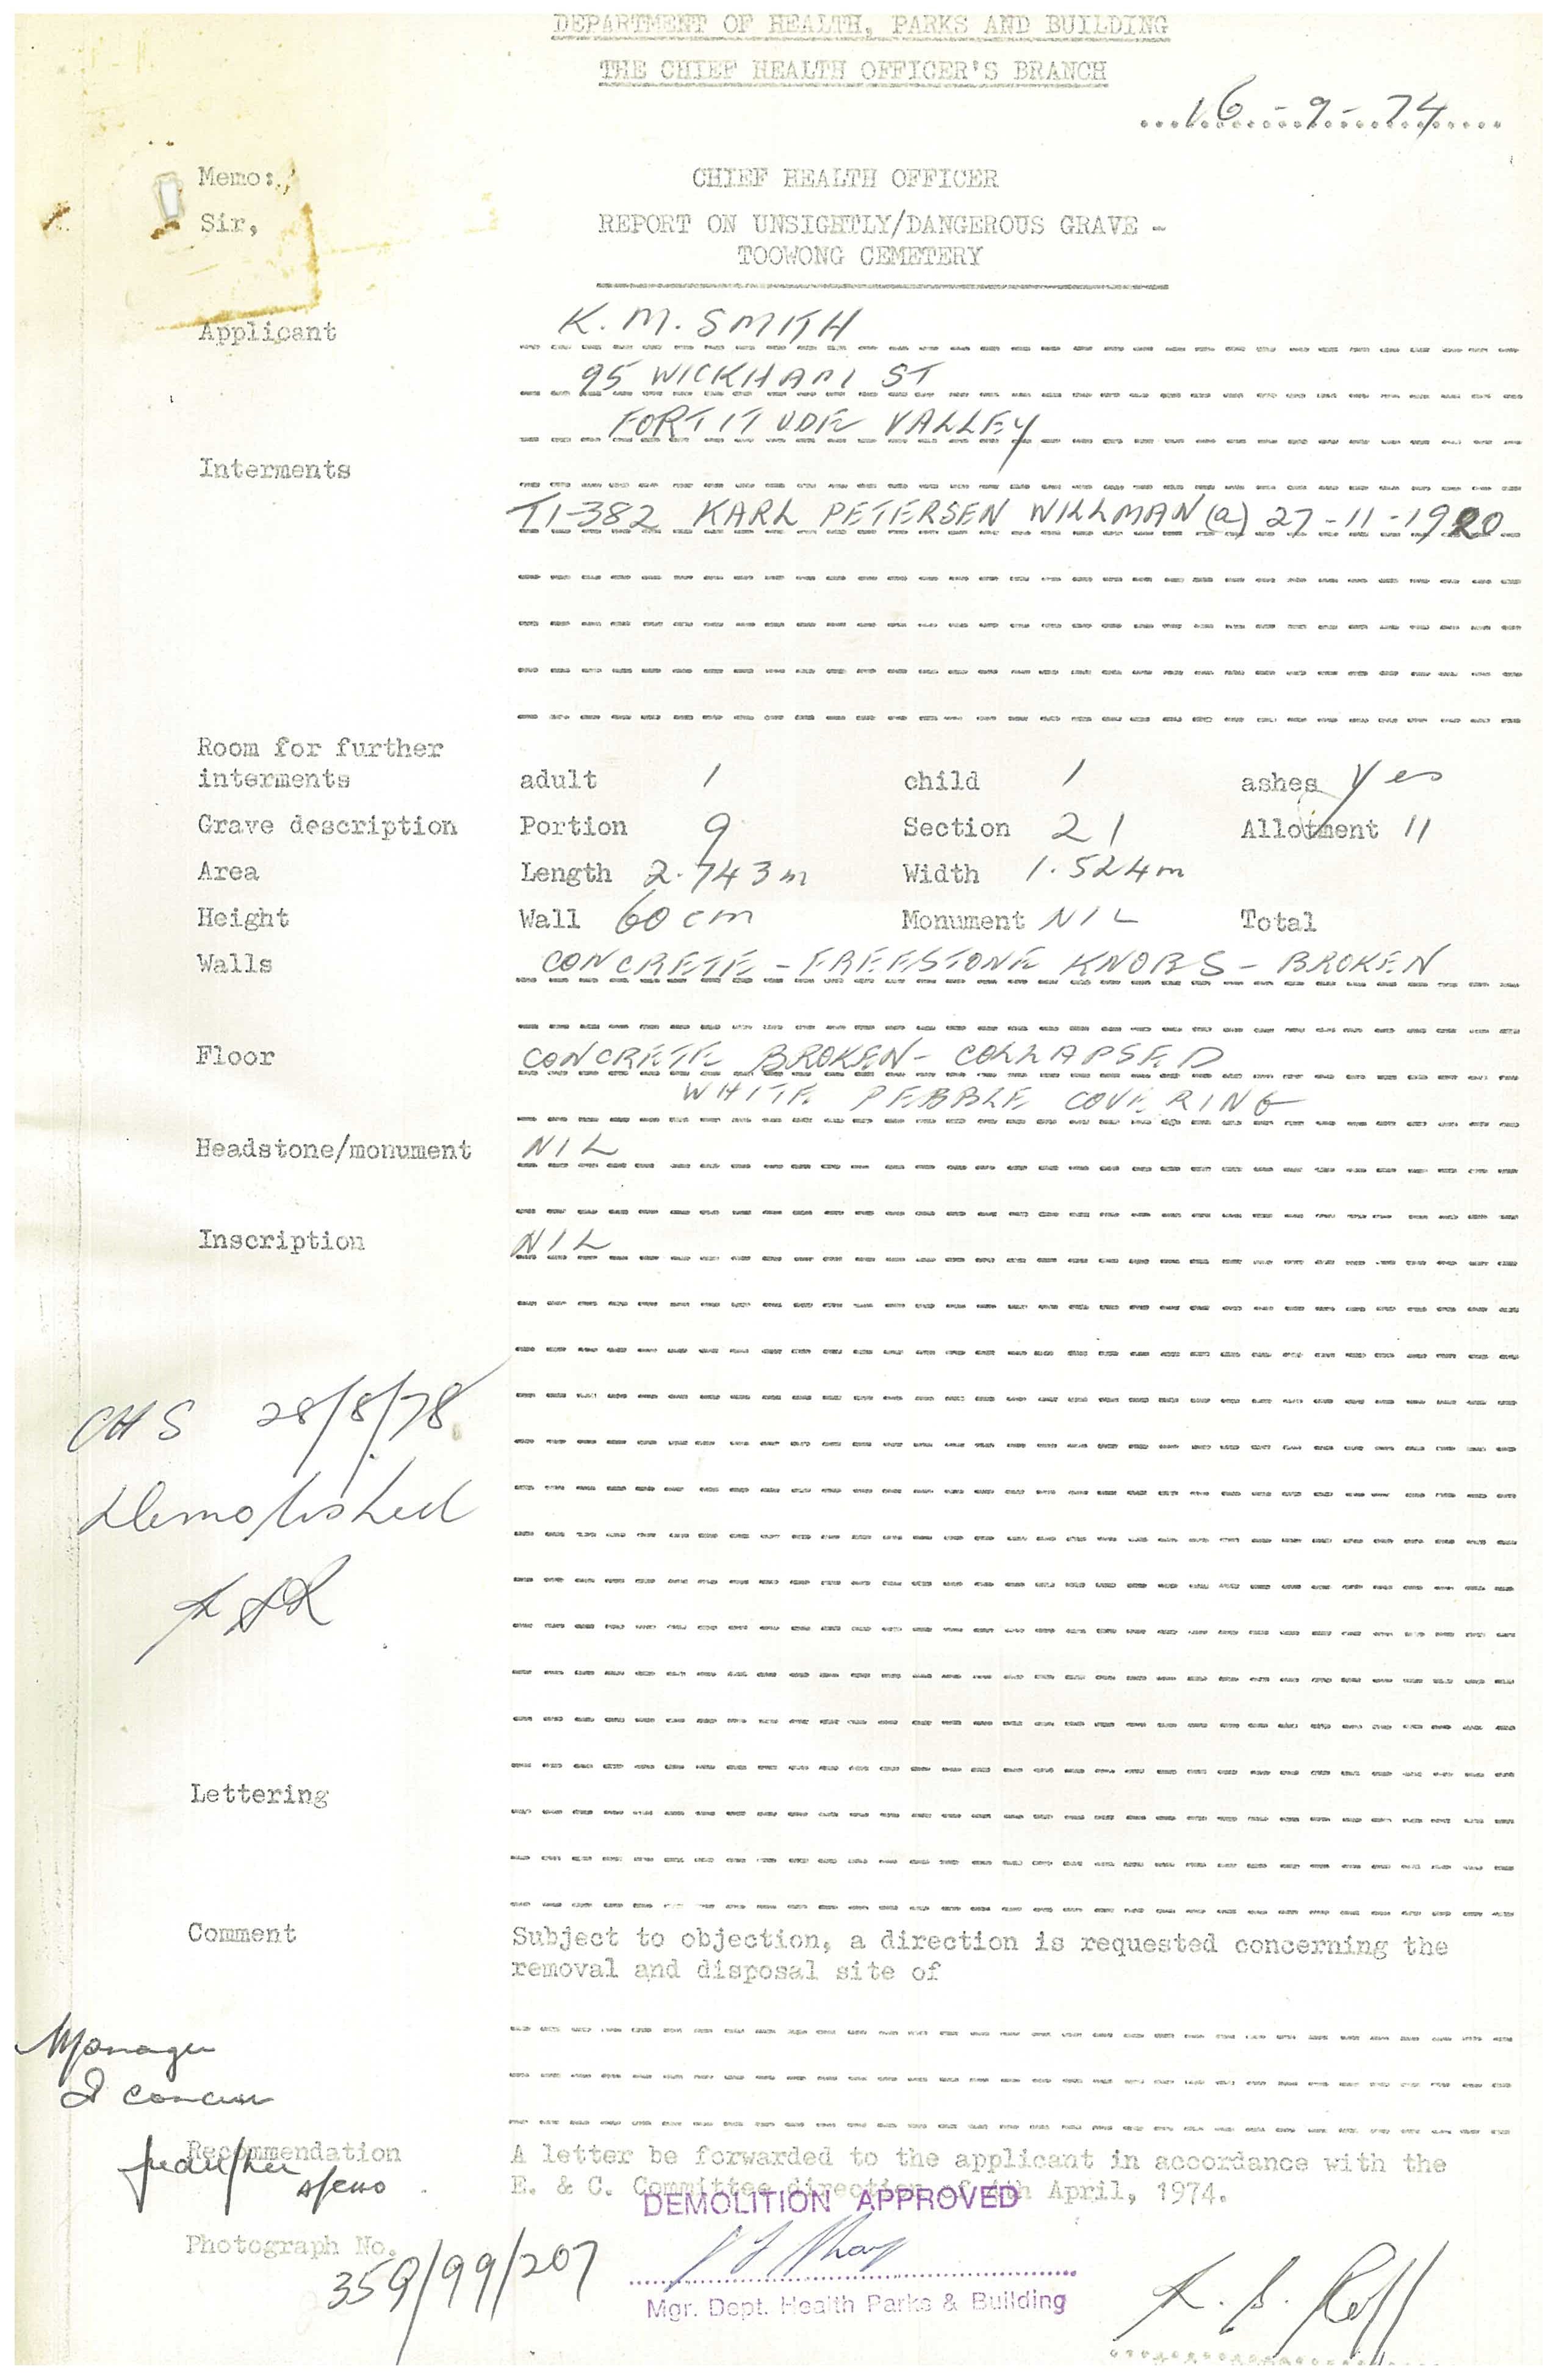 DEPARTMENT OF HEALTH, PARKS AND BUILDING
THE CHIEF HEALTH OFFICER'S BRANCH
16-9-74
Memo:
CHIEF HEALTH OFFICER
Sir,
REPORT ON UNSIGHTLY/DANGEROUS GRAVE -
TOOWONG CEMETERY
Applicant K. M. SMITH
95 WICKHAM ST
FORTITUDE VALLEY
Interments
T1-382 KARL PETERSEN WILLMAN (a) 27-11-1920
Room for further
interments adult 1 child 1 ashes Yes
Grave description Portion 9 Section 21 Allotment 11
Area Length 2.743m Width 1.524m
Height Wall 60cm Monument NIL Total
Walls CONCRETE - FREESTONE KNOBS - BROKEN
Floor CONCRETE BROKEN - COLLAPSED
WHITE PEBBLE COVERING
Headstone/monument NIL
Inscription NIL
CHS 28/8/78
Demolished
Lettering
Comment Subject to objection, a direction is requested concerning the
removal and disposal site of
Manager
I concur
Recommendation A letter be forwarded to the applicant in accordance with the
E. & C. Committee direction of 4th April, 1974.
DEMOLITION APPROVED
Photograph No. 359/99/207
Mgr. Dept. Health Parks & Building